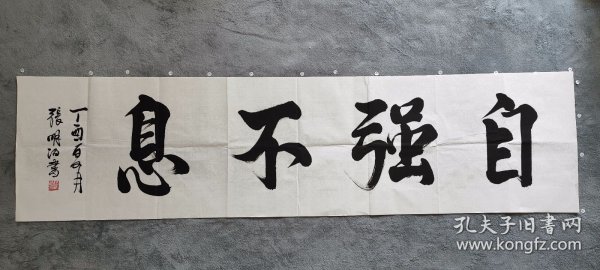 自强不息
丁酉
張明
書
孔夫子旧书网
www.kongfz.com